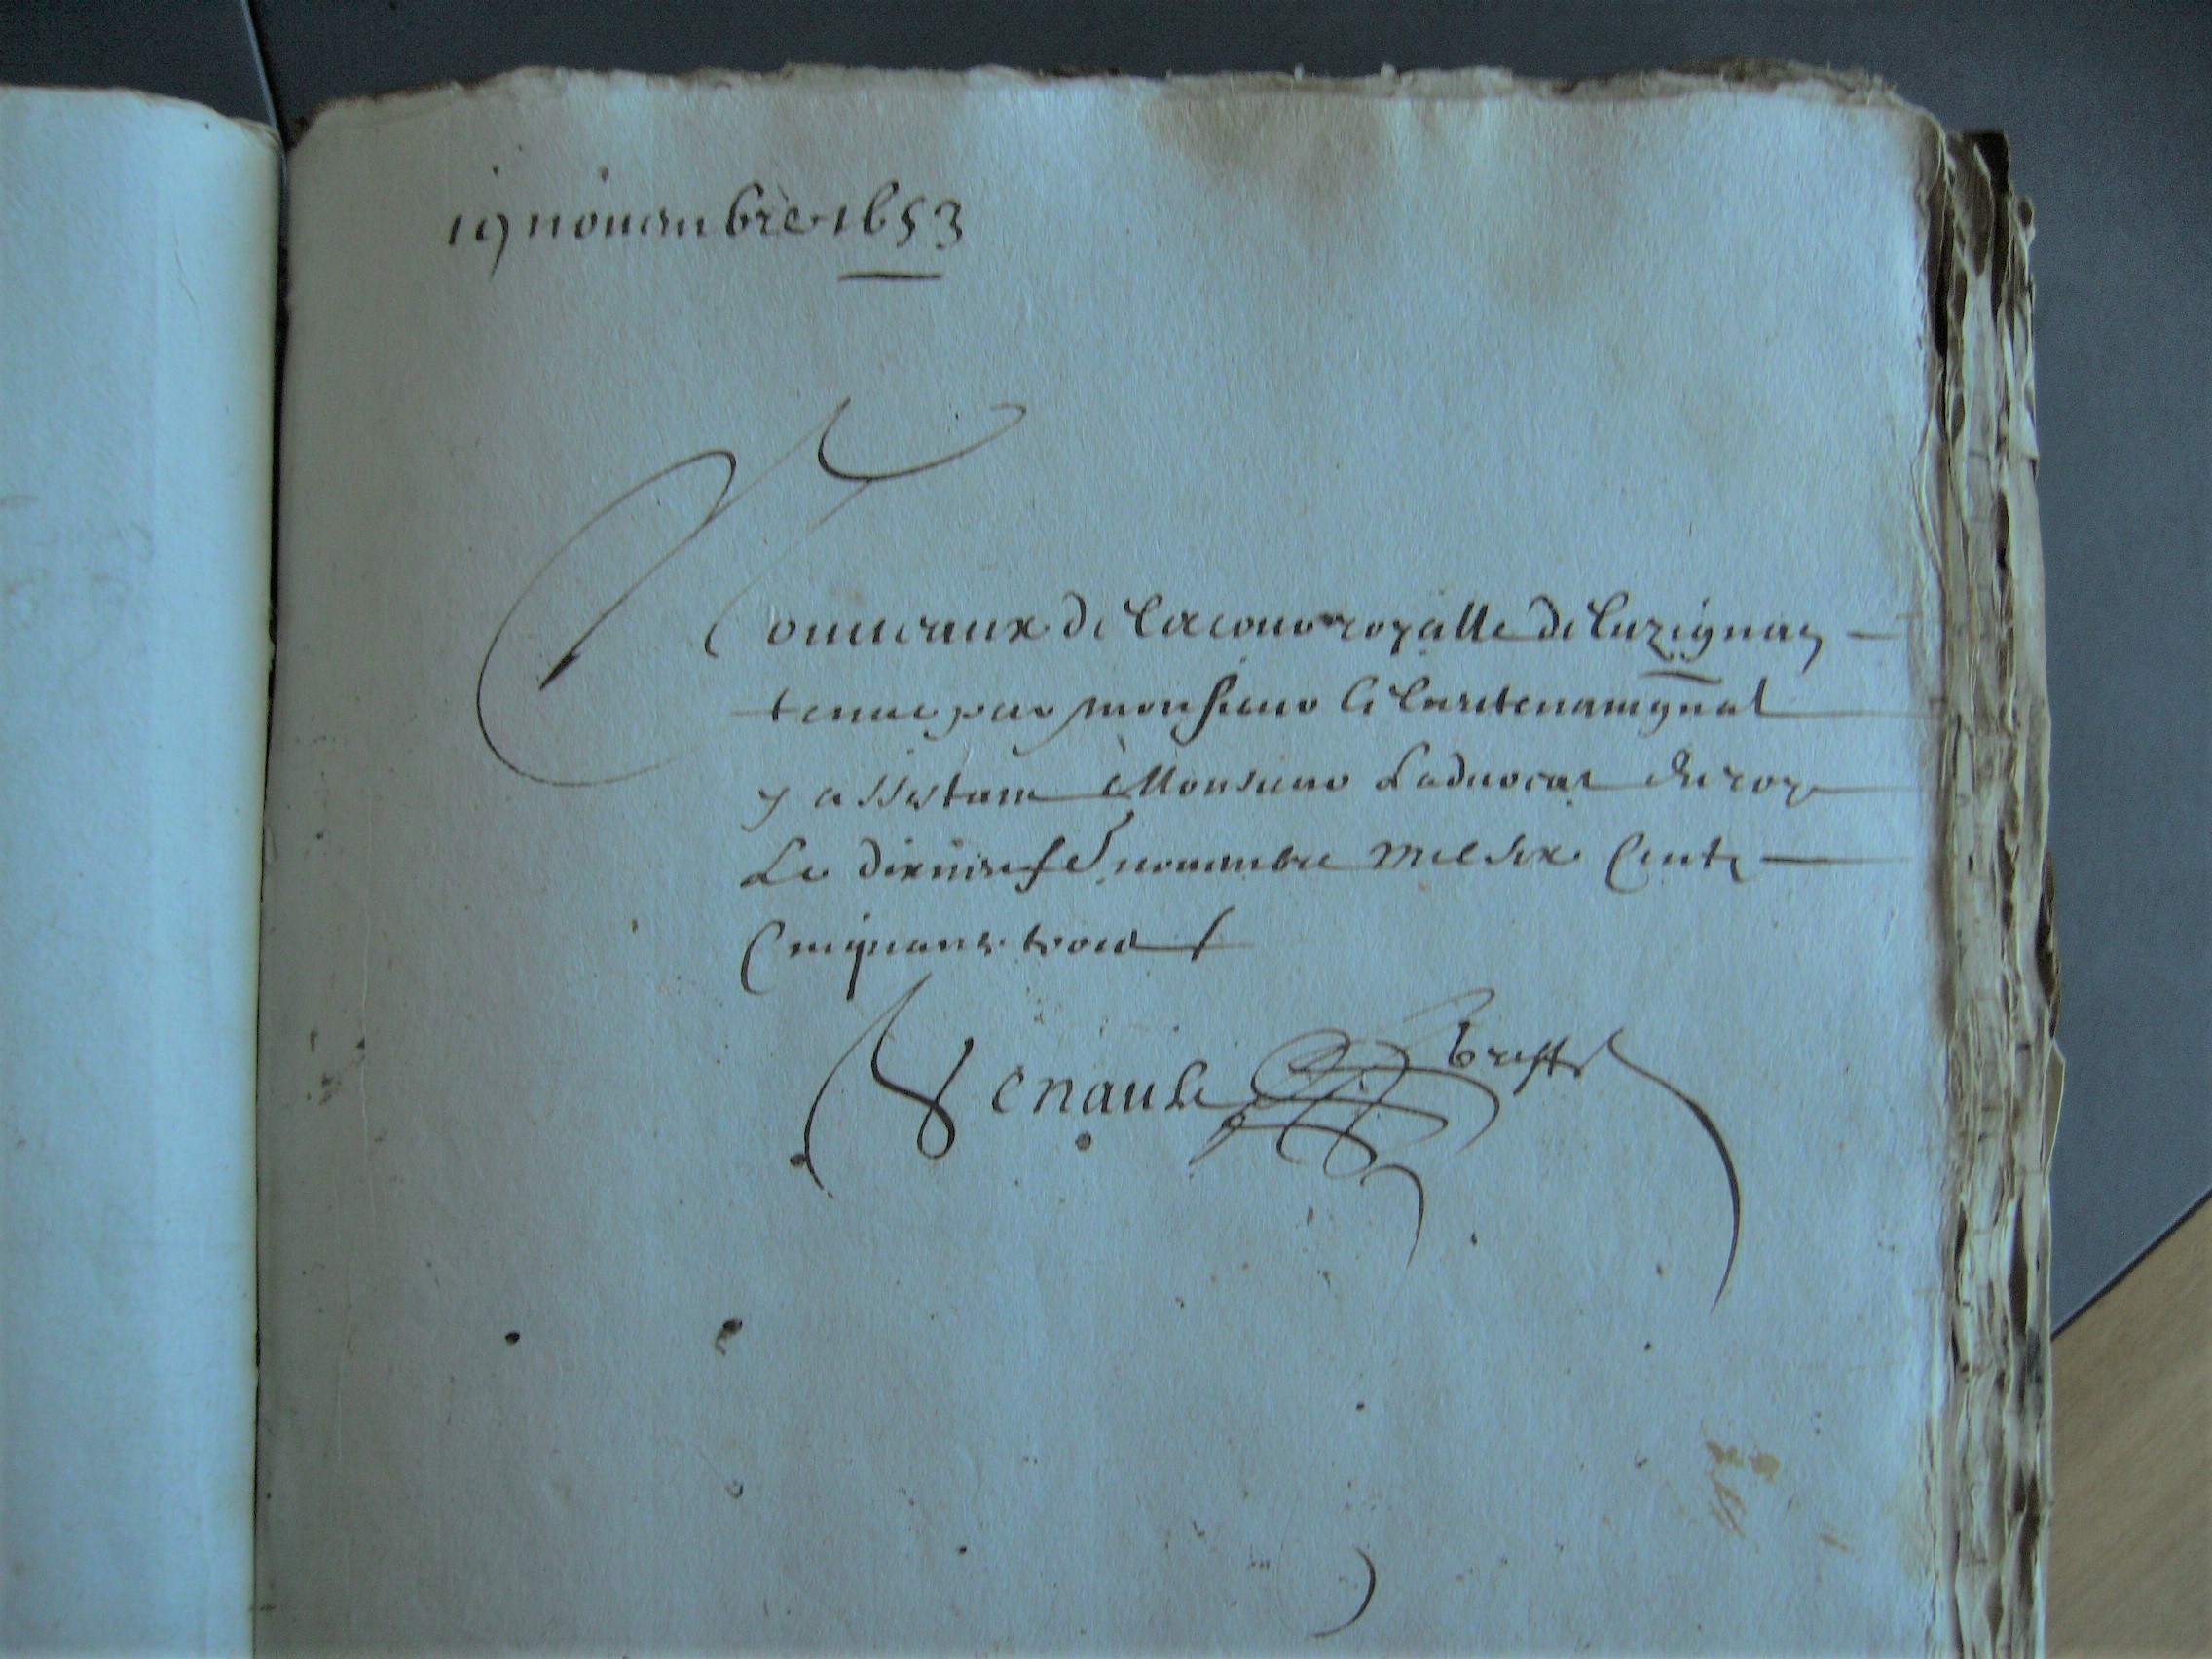 19 nouembre 1653
Nouueaux de la cour royalle de Luzignan
tenue par monsieur le lieutenant gnal
y assistant Monsieur Laduocat du roy
Le dixneufe nouembre mil six Centz
Cinquante trois